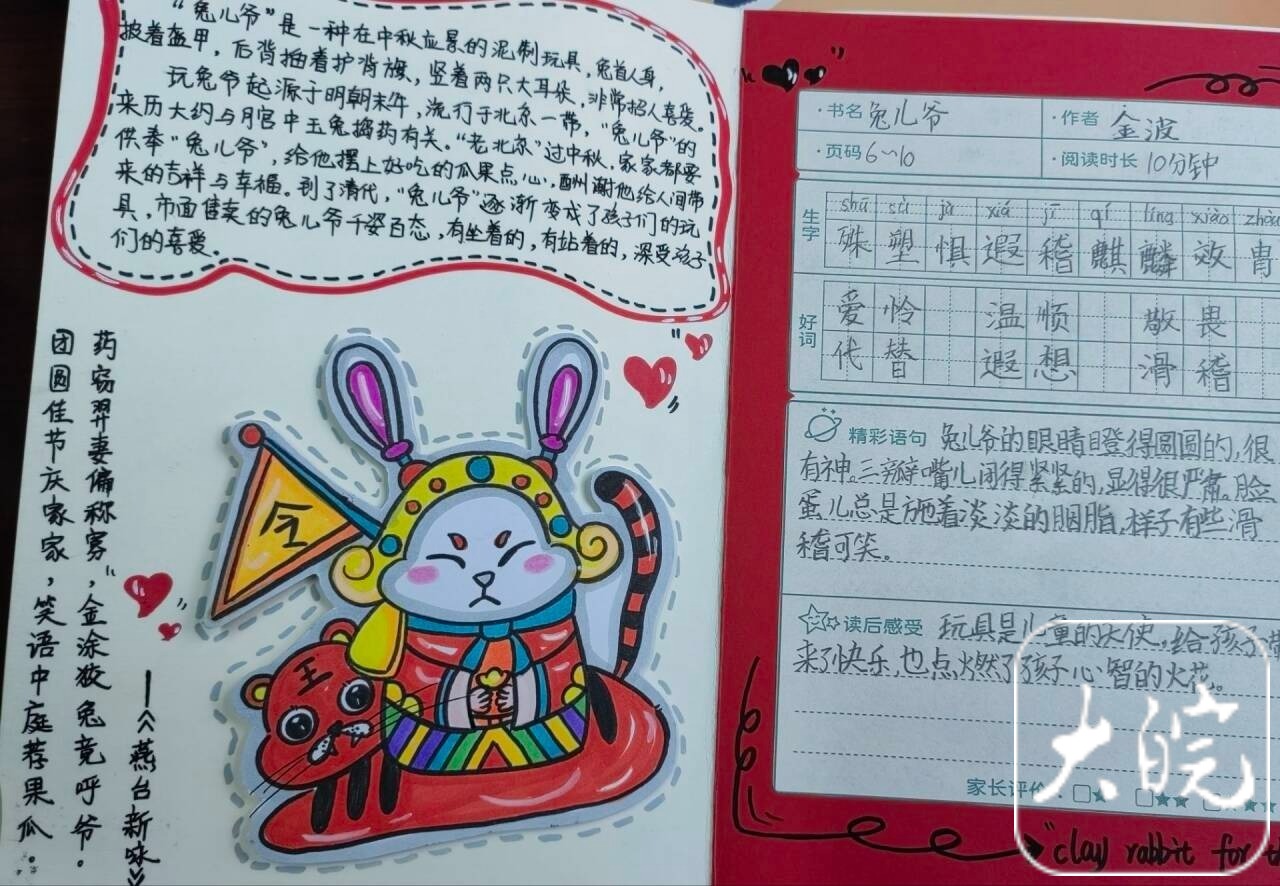 "兔儿爷"是一种在中秋应景的泥制玩具，兔首人身，
披着盔甲，后背插着护背旗，竖着两只大耳朵，非常招人喜爱。
玩兔爷起源于明朝末年，流行于北京一带，"兔儿爷"的
来历大约与月宫中玉兔捣药有关。"老北京"过中秋，家家都要
供奉"兔儿爷"，给他摆上好吃的瓜果点心，酬谢他给人间带
来的吉祥与幸福。到了清代，"兔儿爷"逐渐变成了孩子们的玩
具，市面售卖的兔儿爷千姿百态，有坐着的，有站着的，深受孩子
们的喜爱。
团圆佳节庆家家，笑语中庭荐果瓜。
药窃羿妻偏称寡，金涂狡兔竟呼爷。
——《燕台新咏》
王
·书名 兔儿爷
·作者 金波
·页码 6~10
·阅读时长 10分钟
生字
shū sù jù xiá jī qí lín xiào
殊 塑 惧 遐 稽 麒 麟 效 胄
好词
爱怜 温顺 敬畏
代替 遐想 滑稽
精彩语句 兔儿爷的眼睛瞪得圆圆的，很
有神。三瓣嘴儿闭得紧紧的，显得很严肃。脸
蛋儿总是施着淡淡的胭脂，样子有些滑
稽可笑。
读后感受 玩具是儿童的天使，给孩子带
来了快乐，也点燃了孩子心智的火花。
家长评价：
大皖
"clay rabbit for